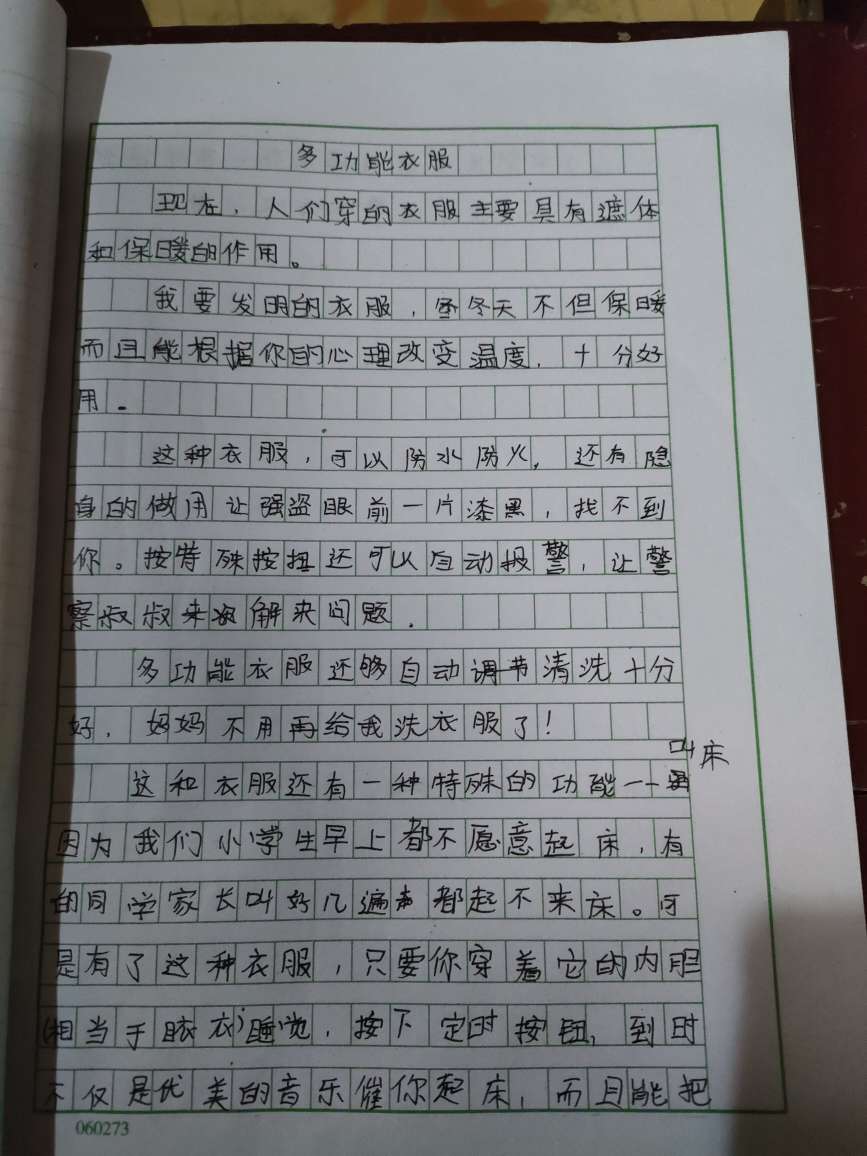 多功能衣服
现在，人们穿的衣服主要具有遮体
和保暖的作用。
我要发明的衣服，冬天不但保暖
而且能根据你的心理改变温度，十分好
用．
这种衣服，可以防水防火，还有隐
身的做用让强盗眼前一片漆黑，找不到
你。按特殊按扭还可以自动报警，让警
察叔叔来解决问题．
多功能衣服还够自动调节清洗十分
好，妈妈不用再给我洗衣服了！
叫床
这和衣服还有一种特殊的功能——
因为我们小学生早上都不愿意起床，有
的同学家长叫好几遍都起不来床。可
是有了这种衣服，只要你穿着它的内胆
（相当于睡衣）睡觉，按下定时按钮，到时
不仅是优美的音乐催你起床，而且能把
060273